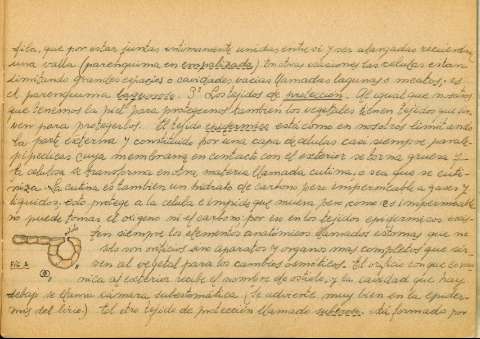 fila, que por estar juntas intimamente unidas entre si y ser alargadas recuerdan
una valla (parenquima en empalizada) En otras ocasiones las celulas estan
limitando grandes espacios o cavidades vacias llamadas lagunas o meatos, es
el parenquima lagunoso. 3º Los tejidos de protección. Al igual que nosotros
tenemos la piel para protegernos tambien los vegetales tienen tejidos que sir-
ven para protegerlos. El tejido epidermico está como en nosotros limitando
la parte externa y constituido por una capa de celulas casi siempre parale-
pipedicas cuya membrana en contacto con el exterior se torna gruesa y
la celulosa se transforma en otra materia llamada cutina, o sea que se cuti-
niza. La cutina es tambien un hidrato de carbono pero impermeable a gases y
liquidos, esto protege a la celula e impide que muera, pero como es impermeable
no puede tomar el oxigeno ni el carbono por en en los tejidos epidermicos exis-
ten siempre los elementos anatómicos llamados estomas que no
solo son orificios sino aparatos y organos mas completos que sir-
ven al vegetal para los cambios osmóticos. El orificio con que comu-
Fig 2
nica al exterior recibe el nombre de ostiolo, y la cavidad que hay
debajo se llama cámara subestomática (Se advierte muy bien en la epider-
mis del lirio) El otro tejido de protección llamado suberoso está formado por